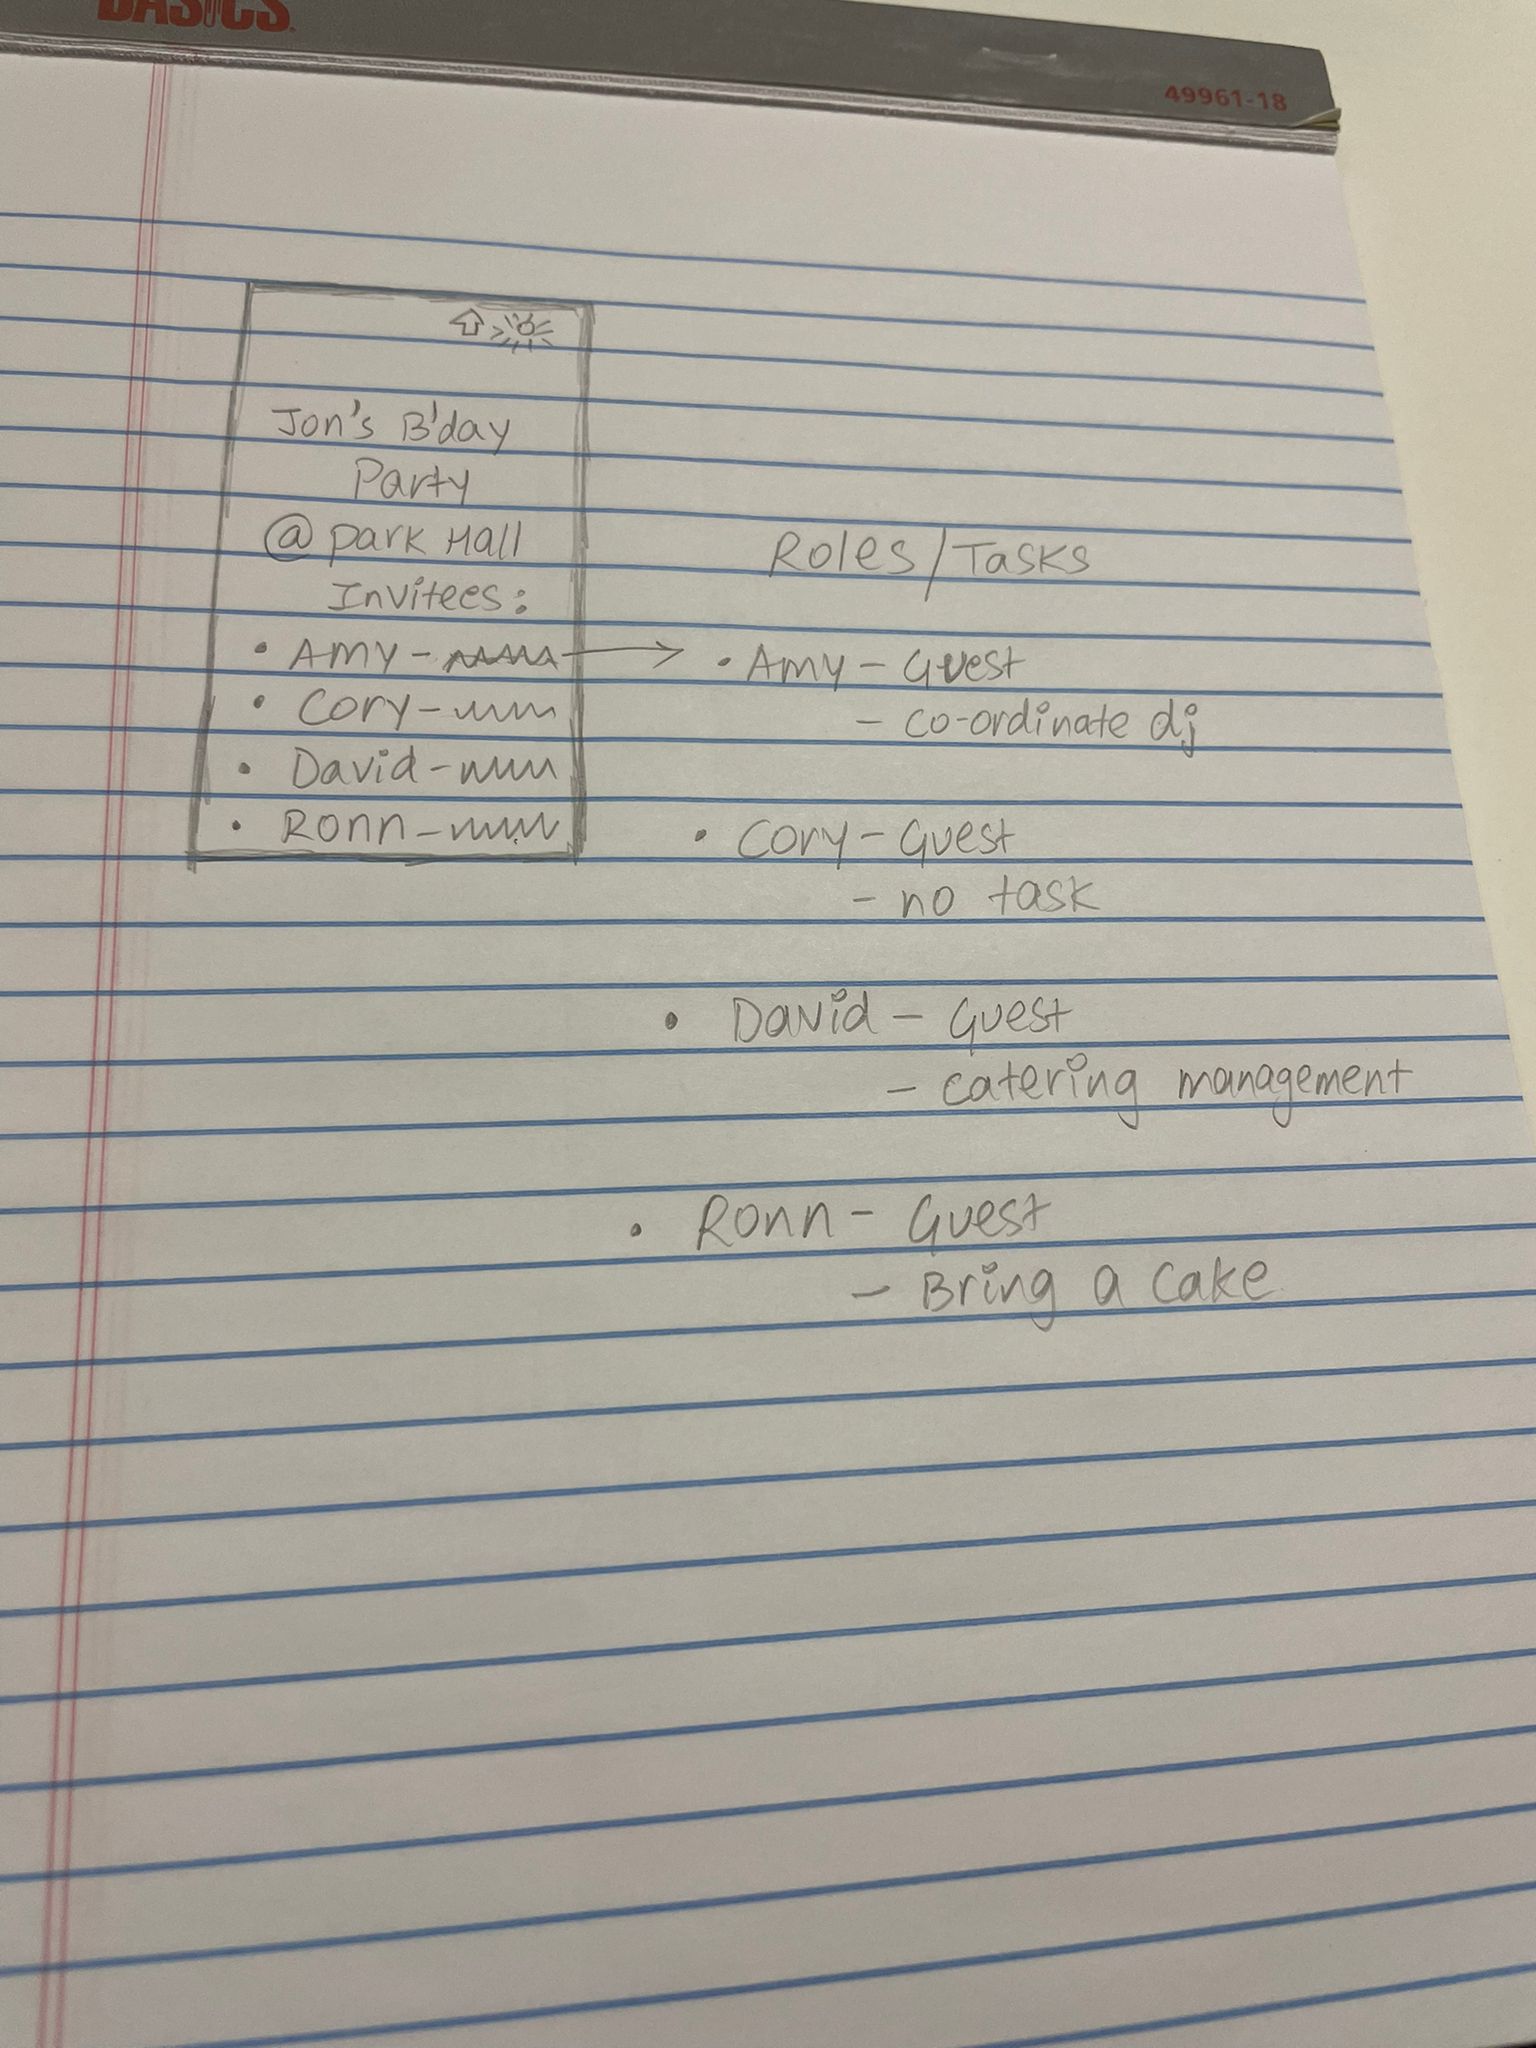 BASICS
49961-18
Jon's B'day
Party
@ park Hall
Invitees:
• Amy -
• Cory -
• David -
• Ronn -
Roles/Tasks
• Amy - Guest
- co-ordinate dj
• Cory - Guest
- no task
• David - Guest
- catering management
• Ronn - Guest
- Bring a cake